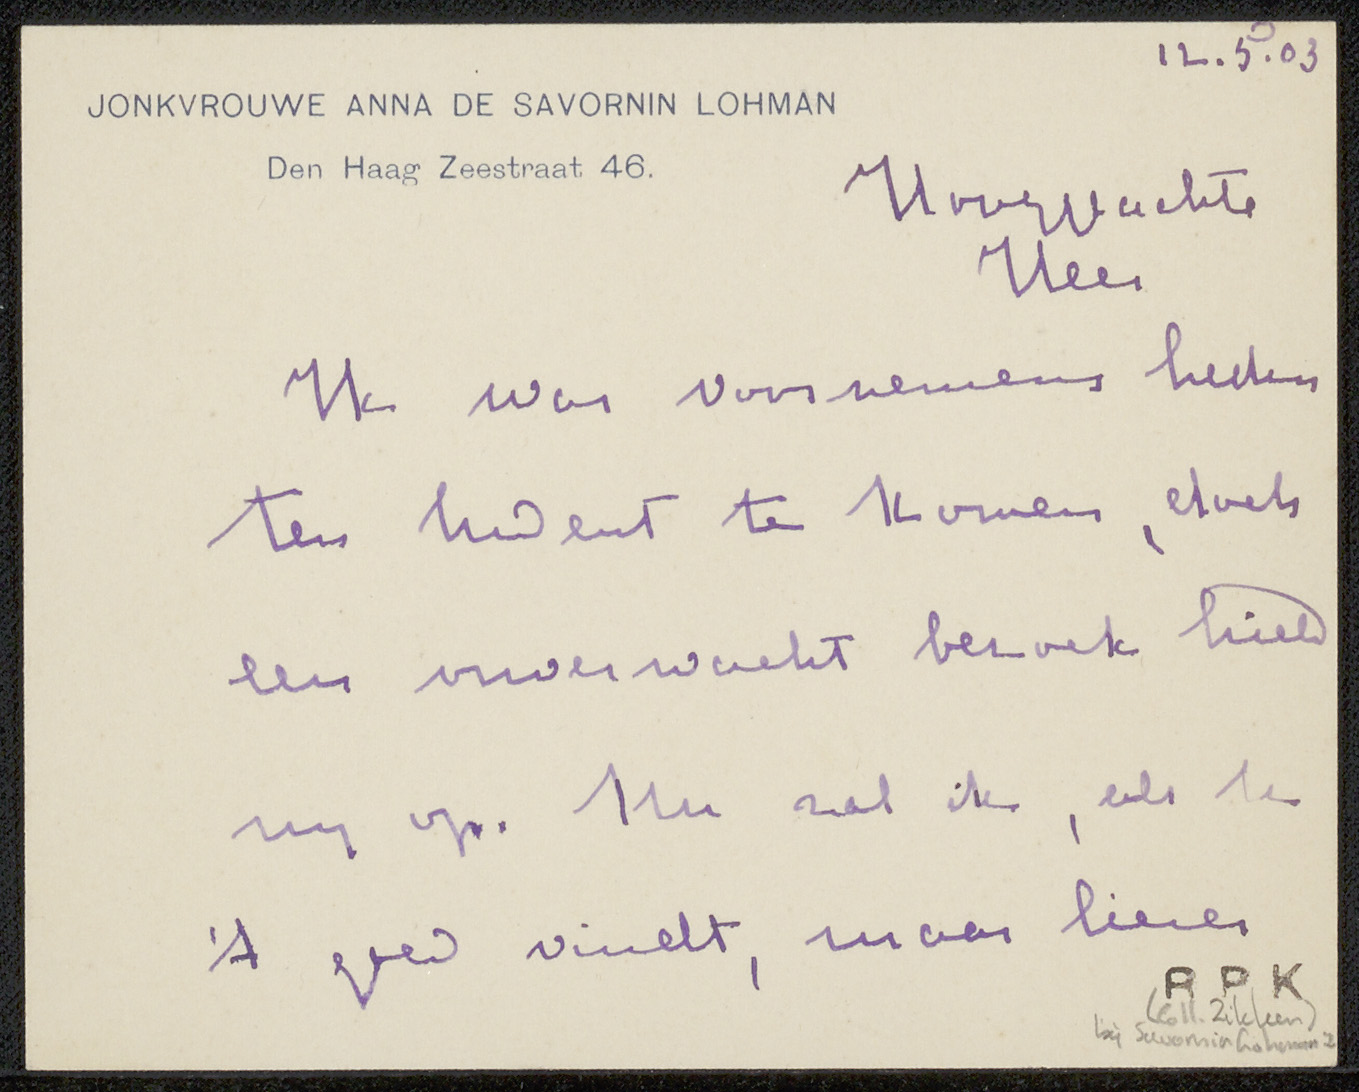 12.5.03
JONKVROUWE ANNA DE SAVORNIN LOHMAN
Den Haag Zeestraat 46.
Hooggeachte
Heer
Ik was voornemens heden
ten uwent te komen, doch
een onverwacht bezoek hield
mij op. Nu zal ik, als U
't goed vindt, maar liever
R P K
(Coll. Zilcken)
bij Savornin Lohman 2